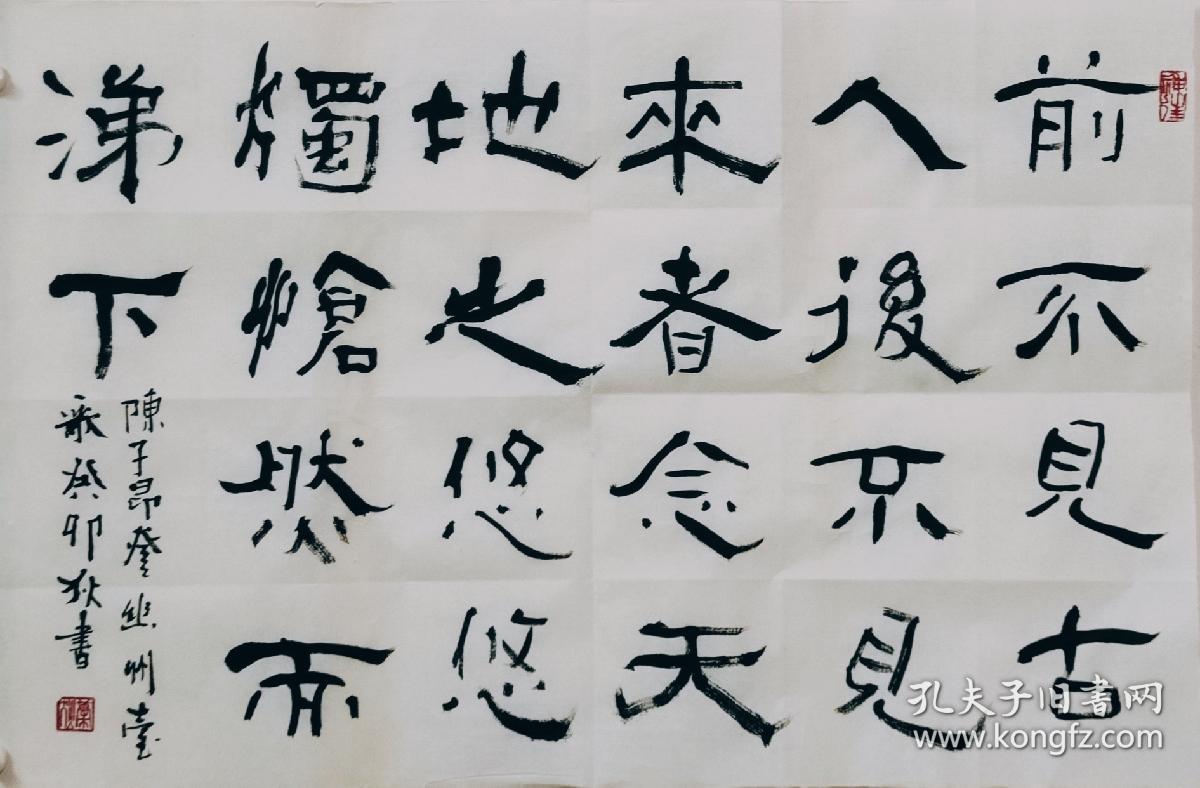 前不見古
人後不見
來者念天
地之悠悠
燭愴然而
涕下
陳子昂登幽州臺
歌癸卯狄書
孔夫子旧书网
www.kongfz.com